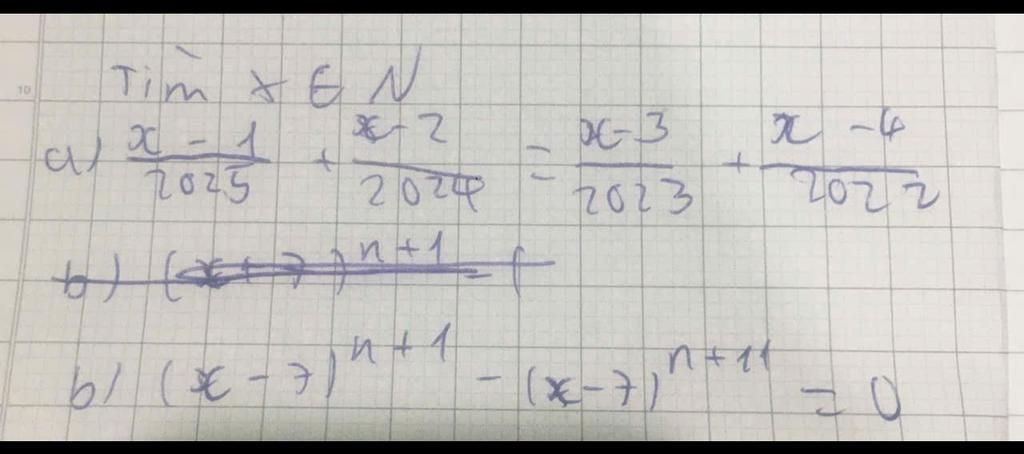 Tìm x ∈ N
a) \frac{x - 1}{2025} + \frac{x - 2}{2024} = \frac{x - 3}{2023} + \frac{x - 4}{2022}
b) (x - 7)^{n+1} - (x - 7)^{n+11} = 0